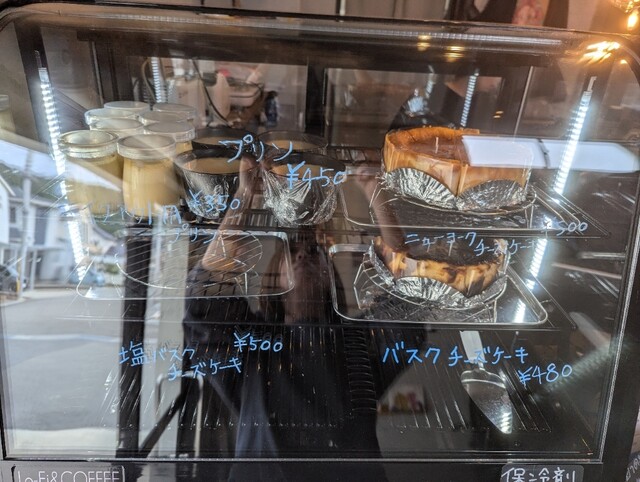 プリン
¥450
¥350
プリン
¥500
ニューヨーク
チーズケーキ
塩バスク
チーズケーキ
¥500
バスク チーズケーキ
¥480
Lo-Fi&COFFEE
保冷剤